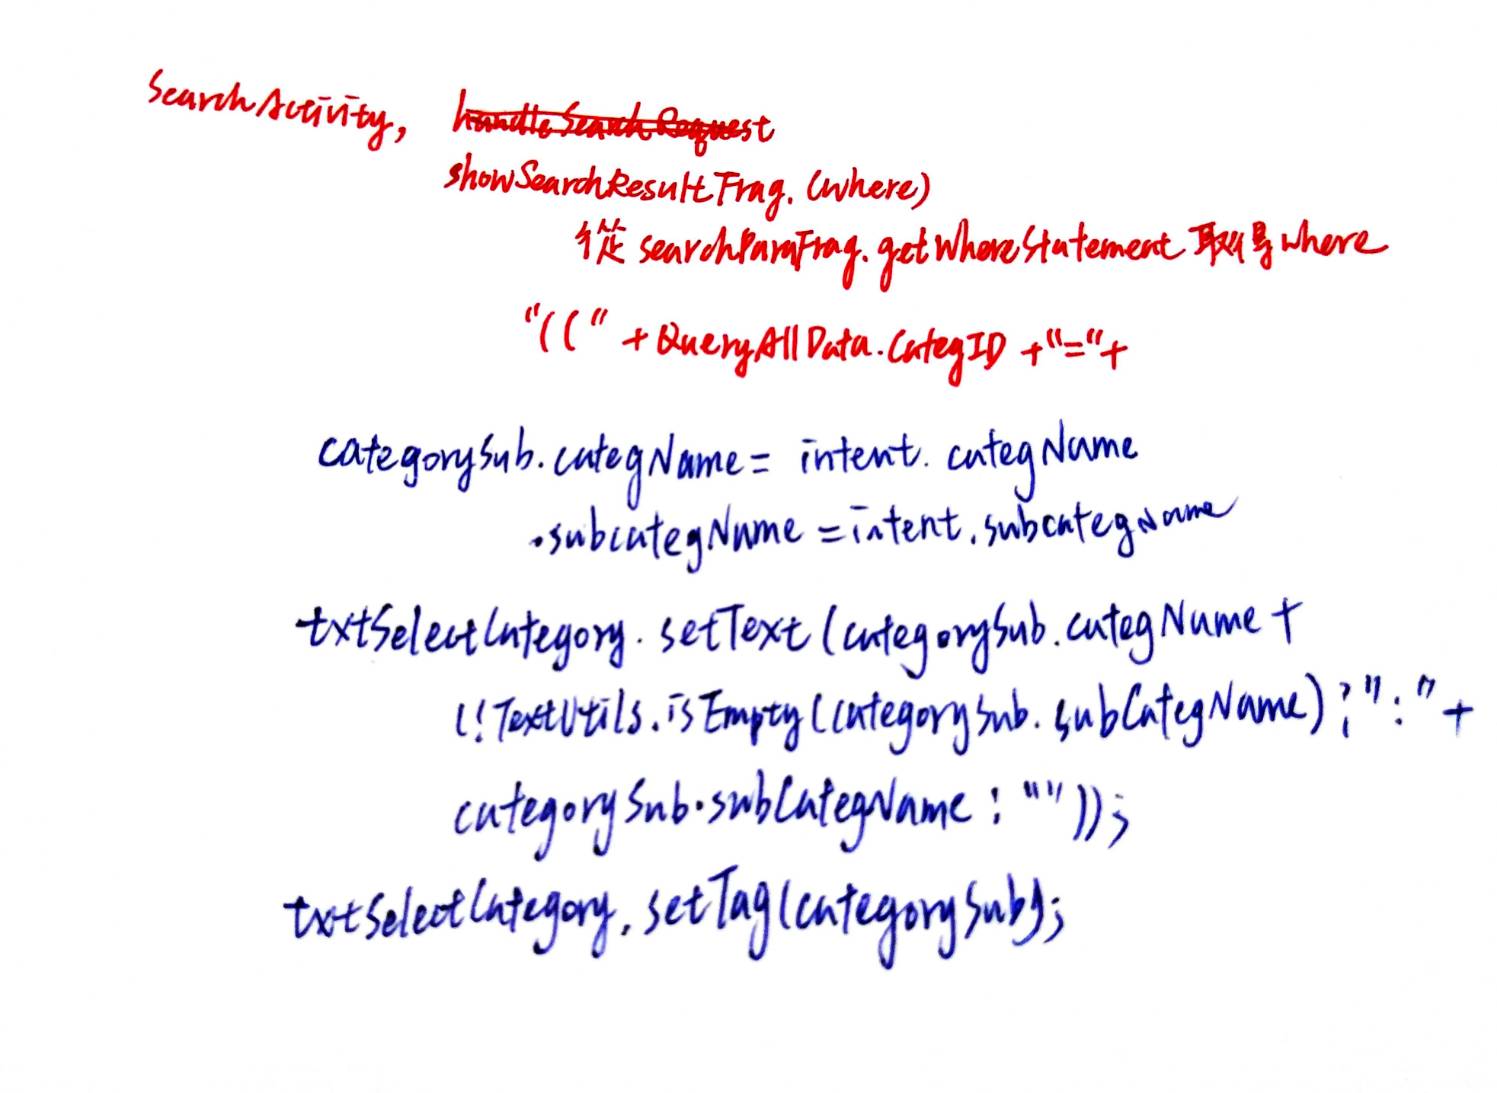 SearchActivity, handleSearchRequest
showSearchResultFrag. (where)
從 searchParaFrag. getWhereStatement 取得 where
"((" + QueryAllData.CategID + "=" +
categorySub.categName = intent. categName
.subcategName = intent.subcategName
txtSelectCategory. setText (categorySub.categName +
(!TextUtils.isEmpty(categorySub.subCategName) ? ":" +
categorySub.subCategName : ""));
txtSelectCategory.setTag(categorySub);